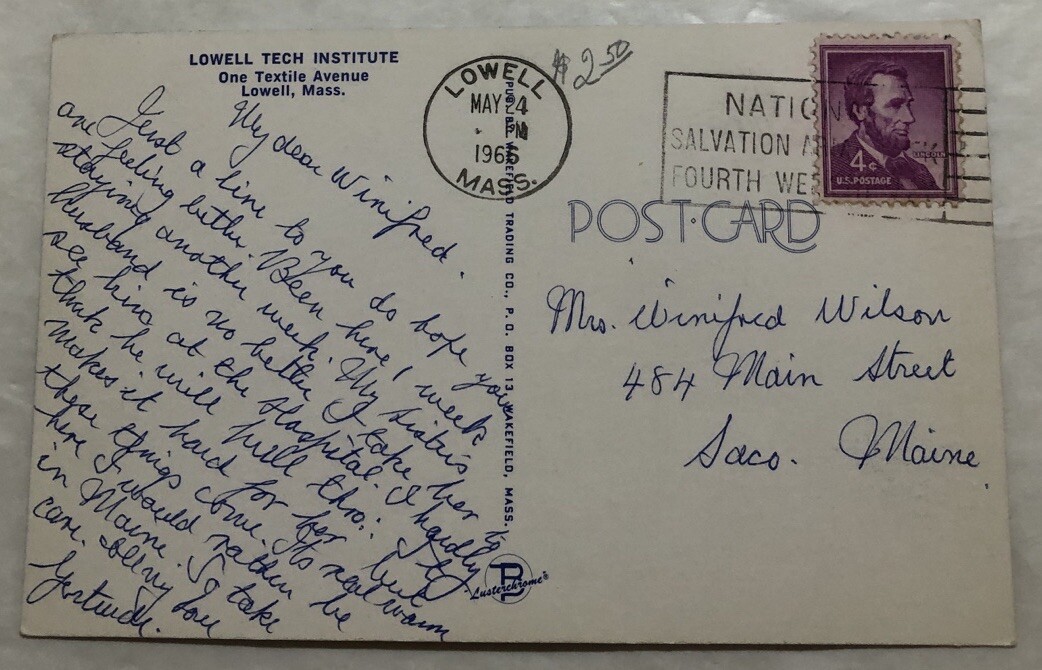 LOWELL TECH INSTITUTE
One Textile Avenue
Lowell, Mass.
My dear Winifred.
Just a line to you do hope you
are feeling better. Been here 1 week
staying another week. My sister's
husband is no better. I take her to
see him at the Hospital. I hardly
think he will pull thro.
makes it hard for her but
these things come. It's real warm
here I would rather be
in Maine. So take
care. All my love
Gertrude.
LOWELL
MAY 4
PM
1966
MASS.
$ 2.50
NATION
SALVATION A
FOURTH WE
LINCOLN
4¢
U.S. POSTAGE
POST CARD
Mrs. Winifred Wilson
484 Main Street
Saco. Maine
TRADING CO., P. O. BOX 13, WAKEFIELD, MASS.
Lusterchrome®